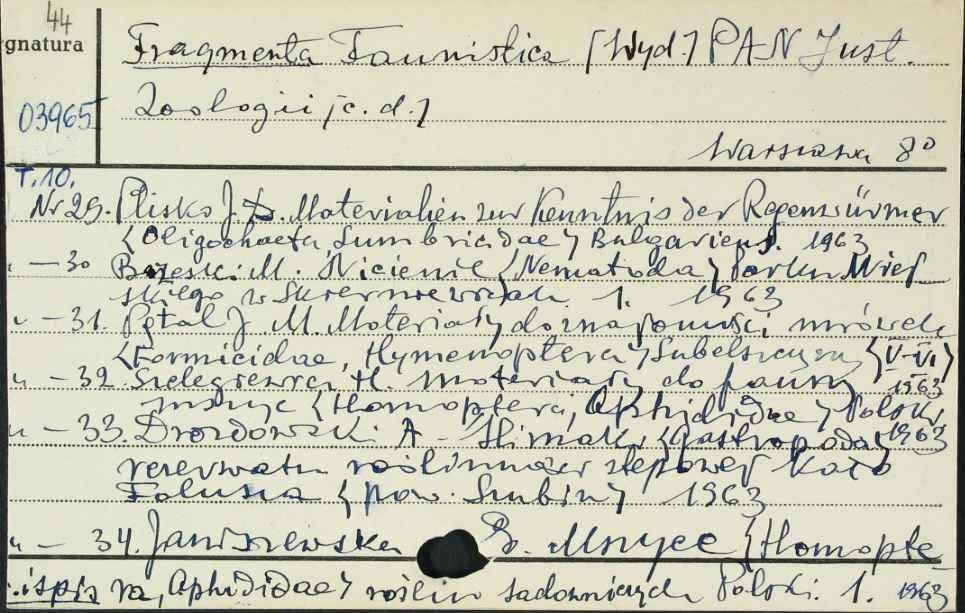 44
gnatura
Fragmenta Faunistica [Wyd.] PAN Inst.
03965
Zoologii [c. d.]
Warszawa 8°
T. 10.
Nr 29. Plisko J. D. Materialien zur Kenntnis der Regenwürmer
(Oligochaeta Lumbricidae) Bulgariens. 1963
" — 30 Brzeski M. Nicienie (Nematoda) Parku Miej
skiego w Skierniewicach 1. 1963
" — 31. Pętal J. M. Materiały do znajomości mrówek
(Formicidae, Hymenoptera) Lubelszczyzny (V-VI)
" — 32 Szelegiewicz H. Materiały do fauny 1963
mszyc (Homoptera, Aphididae) Polski
" — 33. Drozdowski A - Ślimaki (Gastropoda) 1963
rezerwatu roślinności stepowej koło
Folusza (pow. Szubin) 1963
" — 34. Janiszewska B. Mszyce (Homopte
.ispis ra, Aphididae) roślin sadowniczych Polski. 1. 1963